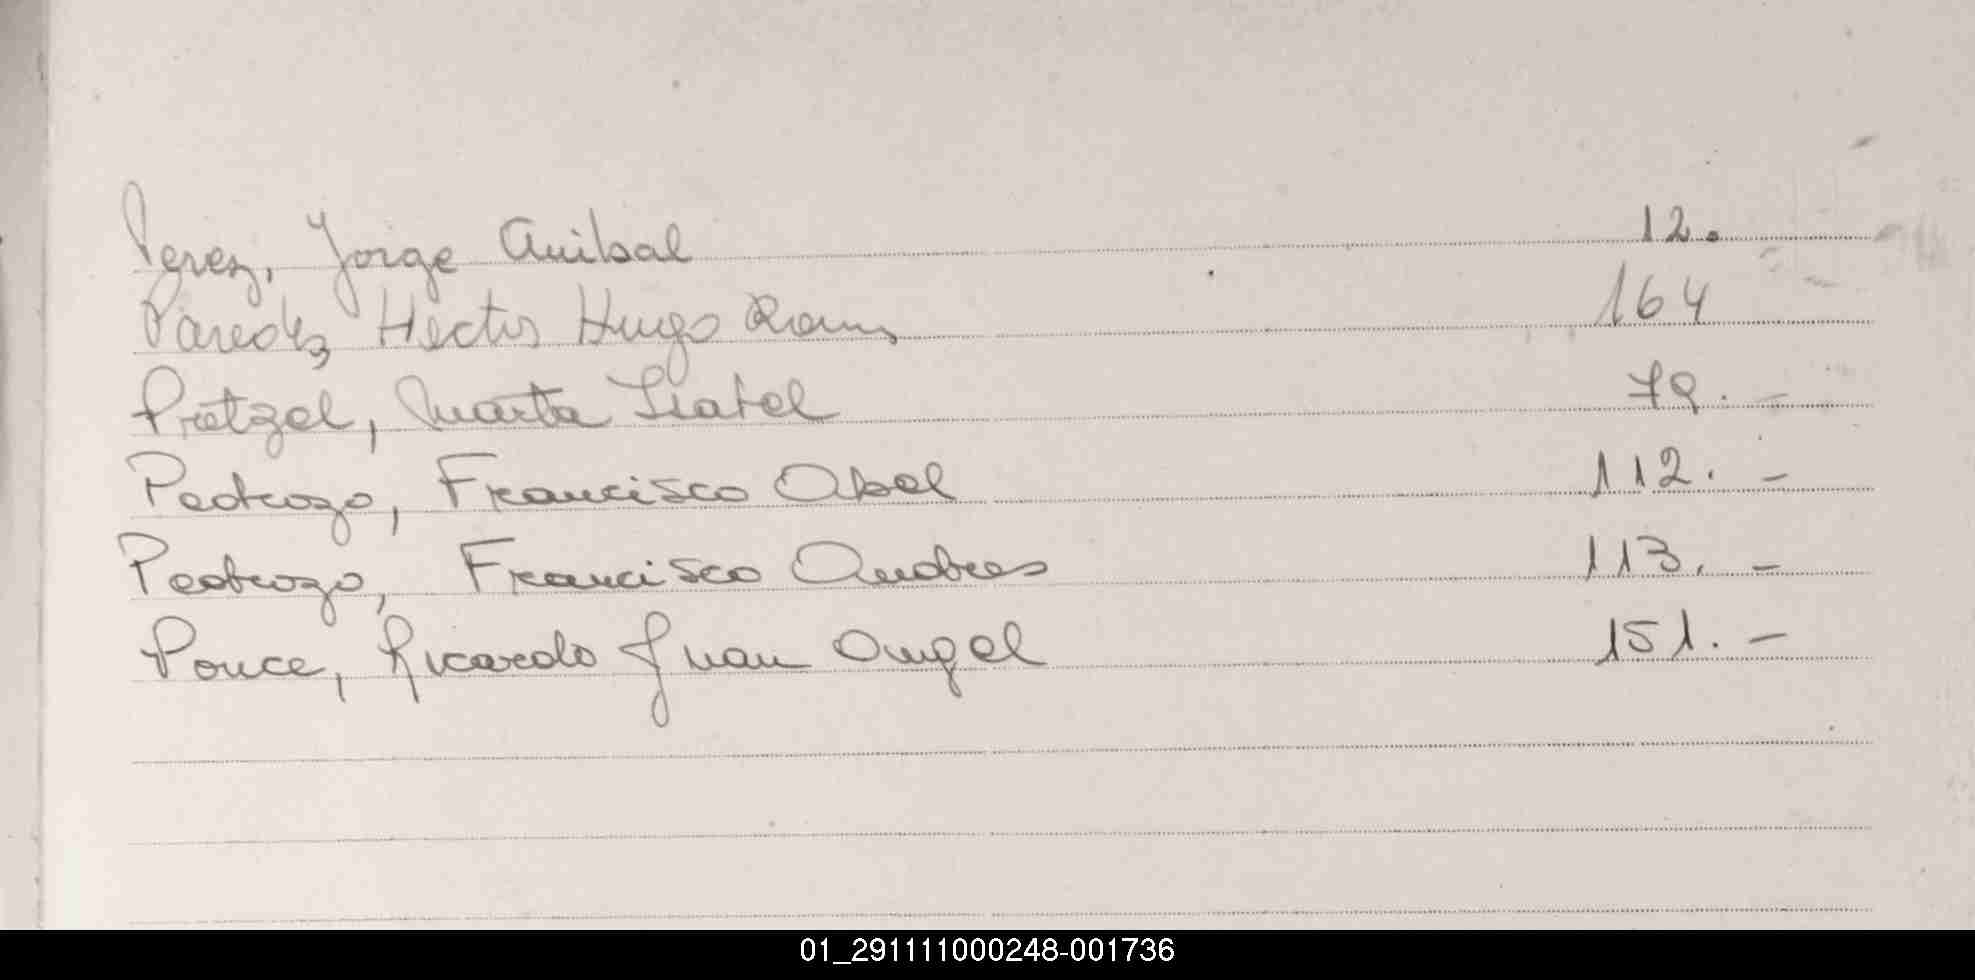 Perez, Jorge Anibal 12.
Paredes Hector Hugo Ramon 164
Pretzel, Marta Isabel 79. -
Pedrozo, Francisco Abel 112. -
Pedrozo, Francisco Andres 113. -
Ponce, Ricardo Juan Angel 151. -
01_291111000248-001736